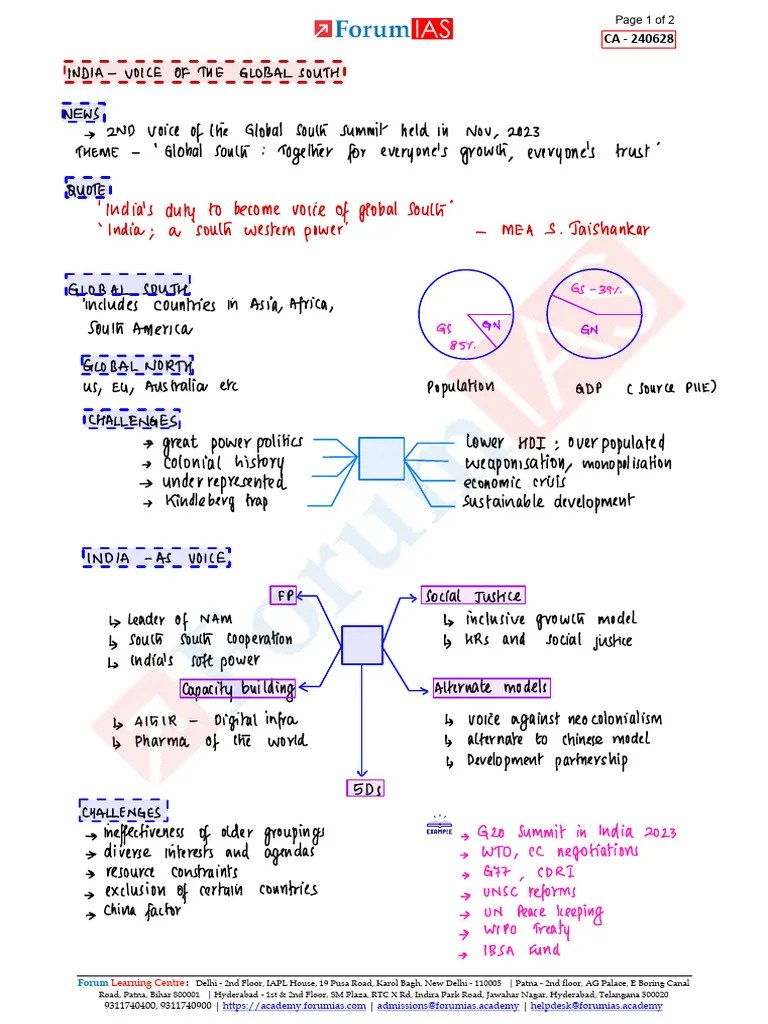 ForumIAS
Page 1 of 2
CA - 240628
INDIA - VOICE OF THE GLOBAL SOUTH
NEWS
→ 2ND Voice of the Global South Summit held in Nov, 2023
THEME - 'Global South : Together for everyone's growth, everyone's trust'
QUOTE
'India's duty to become voice of global South'
'India; a south western power' - MEA S. Jaishankar
GLOBAL SOUTH
includes countries in Asia, Africa,
South America
GS 85% GN
GS - 39% GN
Population
GDP (Source PIIE)
GLOBAL NORTH
US, EU, Australia etc
CHALLENGES
→ great power politics
→ colonial history
→ under represented
→ Kindleberg trap
lower HDI ; over populated
weaponisation, monopolisation
economic crisis
sustainable development
INDIA - AS VOICE
FP
↳ Leader of NAM
↳ South South Cooperation
↳ India's soft power
Social Justice
↳ inclusive growth model
↳ HRs and social justice
Capacity building
↳ Digital infra
↳ Pharma of the world
Alternate models
↳ voice against neocolonialism
↳ alternate to chinese model
↳ Development partnership
5Ds
CHALLENGES
→ ineffectiveness of older groupings
→ diverse interests and agendas
→ resource constraints
→ exclusion of certain countries
→ China factor
EXAMPLE
→ G20 Summit in India 2023
→ WTO, CC negotiations
→ G77, CDRI
→ UNSC reforms
→ UN Peace keeping
→ WIPO Treaty
→ IBSA Fund
Forum Learning Centre: Delhi - 2nd Floor, IAPL House, 19 Pusa Road, Karol Bagh, New Delhi - 110005 | Patna - 2nd floor, AG Palace, E Boring Canal
Road, Patna, Bihar 800001 | Hyderabad - 1st & 2nd Floor, SM Plaza, RTC X Rd, Indira Park Road, Jawahar Nagar, Hyderabad, Telangana 500020
9311740400, 9311740900 | https://academy.forumias.com | admissions@forumias.academy | helpdesk@forumias.academy